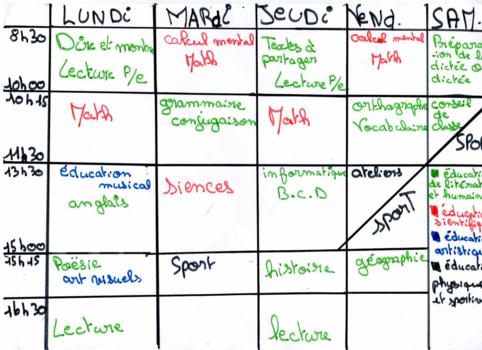 LUNDi MARdi JEUDi VeNd. SAM.
8h30
Dire et montre
Lecture P/e
calcul mental
Math
Textes à
partager
Lecture P/e
calcul mental
Math
Prépara
-ion de l
dictée o
dictée
10h00
10h15
Math
grammaire
conjugaison
Math
orthographe
Vocabulaire
conseil
de
classe
SPO
11h30
13h30
éducation
musical
anglais
Siences
informatique
B.C.D
ateliers
SPORT
éducati
de litérat
et humain
éducati
sientifiq
éducati
artistiqu
éducati
physiqu
et sportiv
15h00
15h15
Poësie
art visuels
Sport
histoire
géographie
16h30
Lecture
lecture